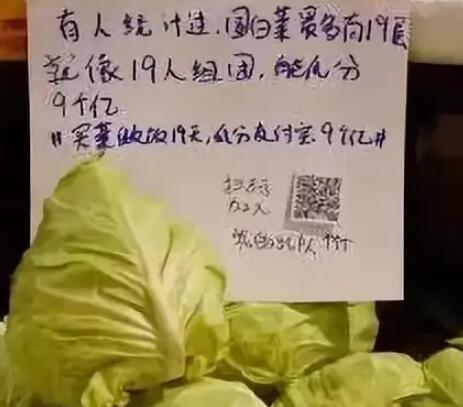 有人统计过,圆白菜最多有19层
就像19人组团,能瓜分
9个亿
#买菜做饭19天,瓜分支付宝9个亿#